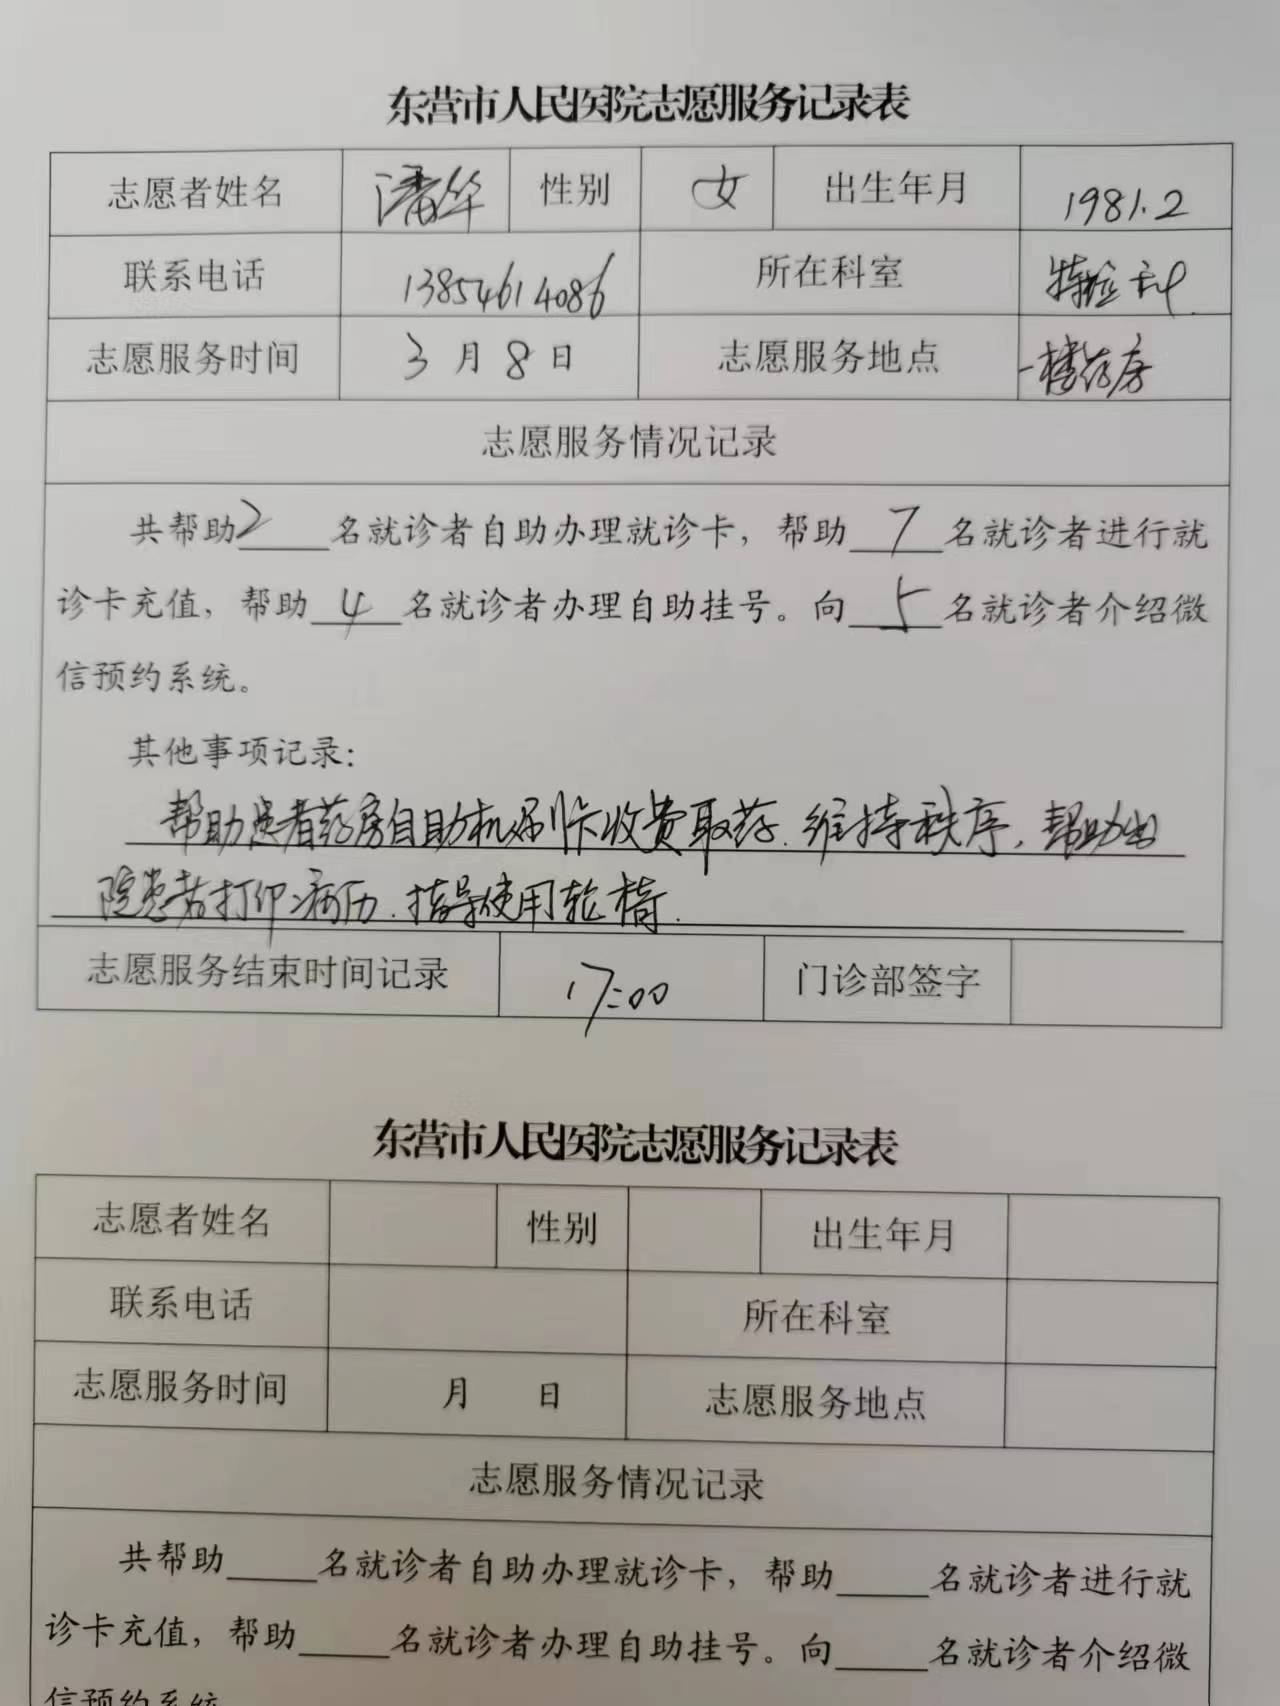 东营市人民医院志愿服务记录表
志愿者姓名 潘华 性别 女 出生年月 1981.2
联系电话 13854614086 所在科室 特检科
志愿服务时间 3月8日 志愿服务地点 一楼药房
志愿服务情况记录
共帮助2名就诊者自助办理就诊卡，帮助7名就诊者进行就
诊卡充值，帮助4名就诊者办理自助挂号。向5名就诊者介绍微
信预约系统。
其他事项记录：
帮助患者药房自助机刷卡收费取药.维持秩序，帮助出
院患者打印病历.指导使用轮椅.
志愿服务结束时间记录 17:00 门诊部签字
东营市人民医院志愿服务记录表
志愿者姓名 性别 出生年月
联系电话 所在科室
志愿服务时间 月 日 志愿服务地点
志愿服务情况记录
共帮助____名就诊者自助办理就诊卡，帮助____名就诊者进行就
诊卡充值，帮助____名就诊者办理自助挂号。向____名就诊者介绍微
信预约系统